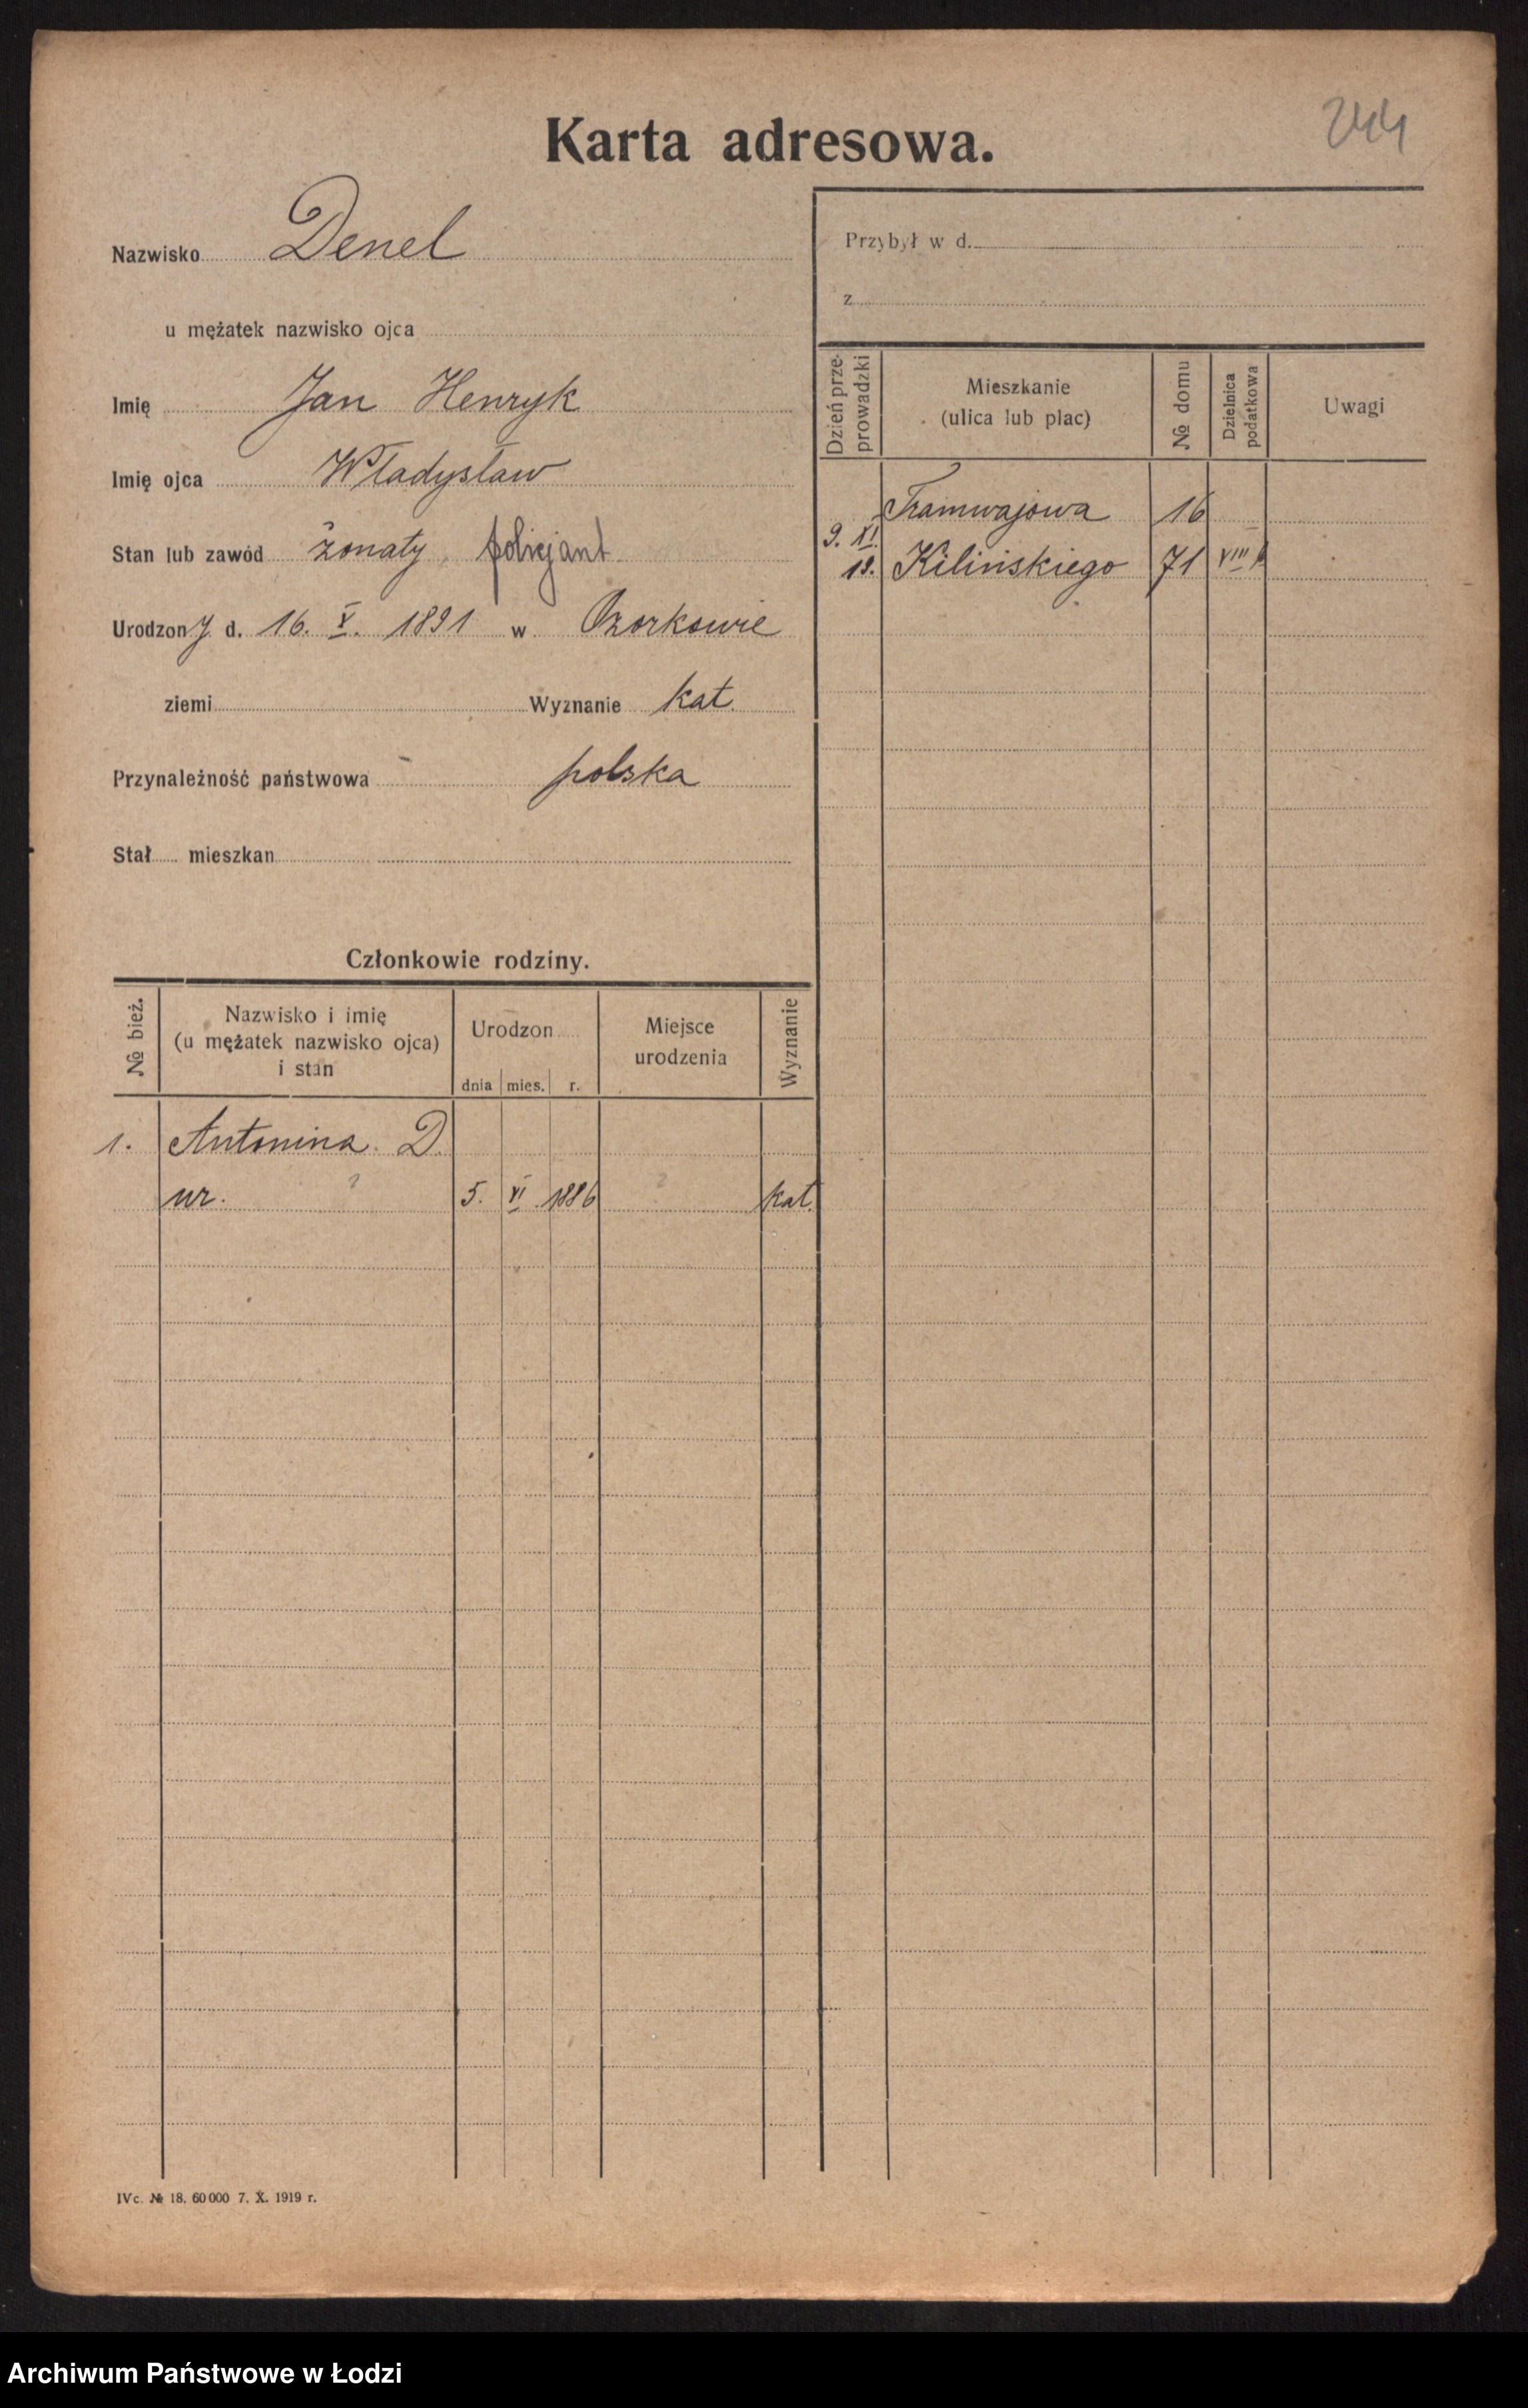 244
Karta adresowa.
Nazwisko Denel
u mężatek nazwisko ojca
Imię Jan Henryk
Imię ojca Władysław
Stan lub zawód żonaty policjant
Urodzony d. 16. V. 1891 w Ozorkowie
ziemi Wyznanie kat.
Przynależność państwowa polska
Stał mieszkan
Przybył w d.
z
Dzień prze-prowadzki
Mieszkanie (ulica lub plac)
№ domu
Dzielnica podatkowa
Uwagi
Tramwajowa 16
9. XI. 19. Kilińskiego 71 VIII
Członkowie rodziny.
№ bież.
Nazwisko i imię
(u mężatek nazwisko ojca)
i stan
Urodzon
dnia mies. r.
Miejsce urodzenia
Wyznanie
1. Antonina D.
ur. ? 5. VI 1886 ? kat.
IVc. № 18. 60000 7. X. 1919 r.
Archiwum Państwowe w Łodzi